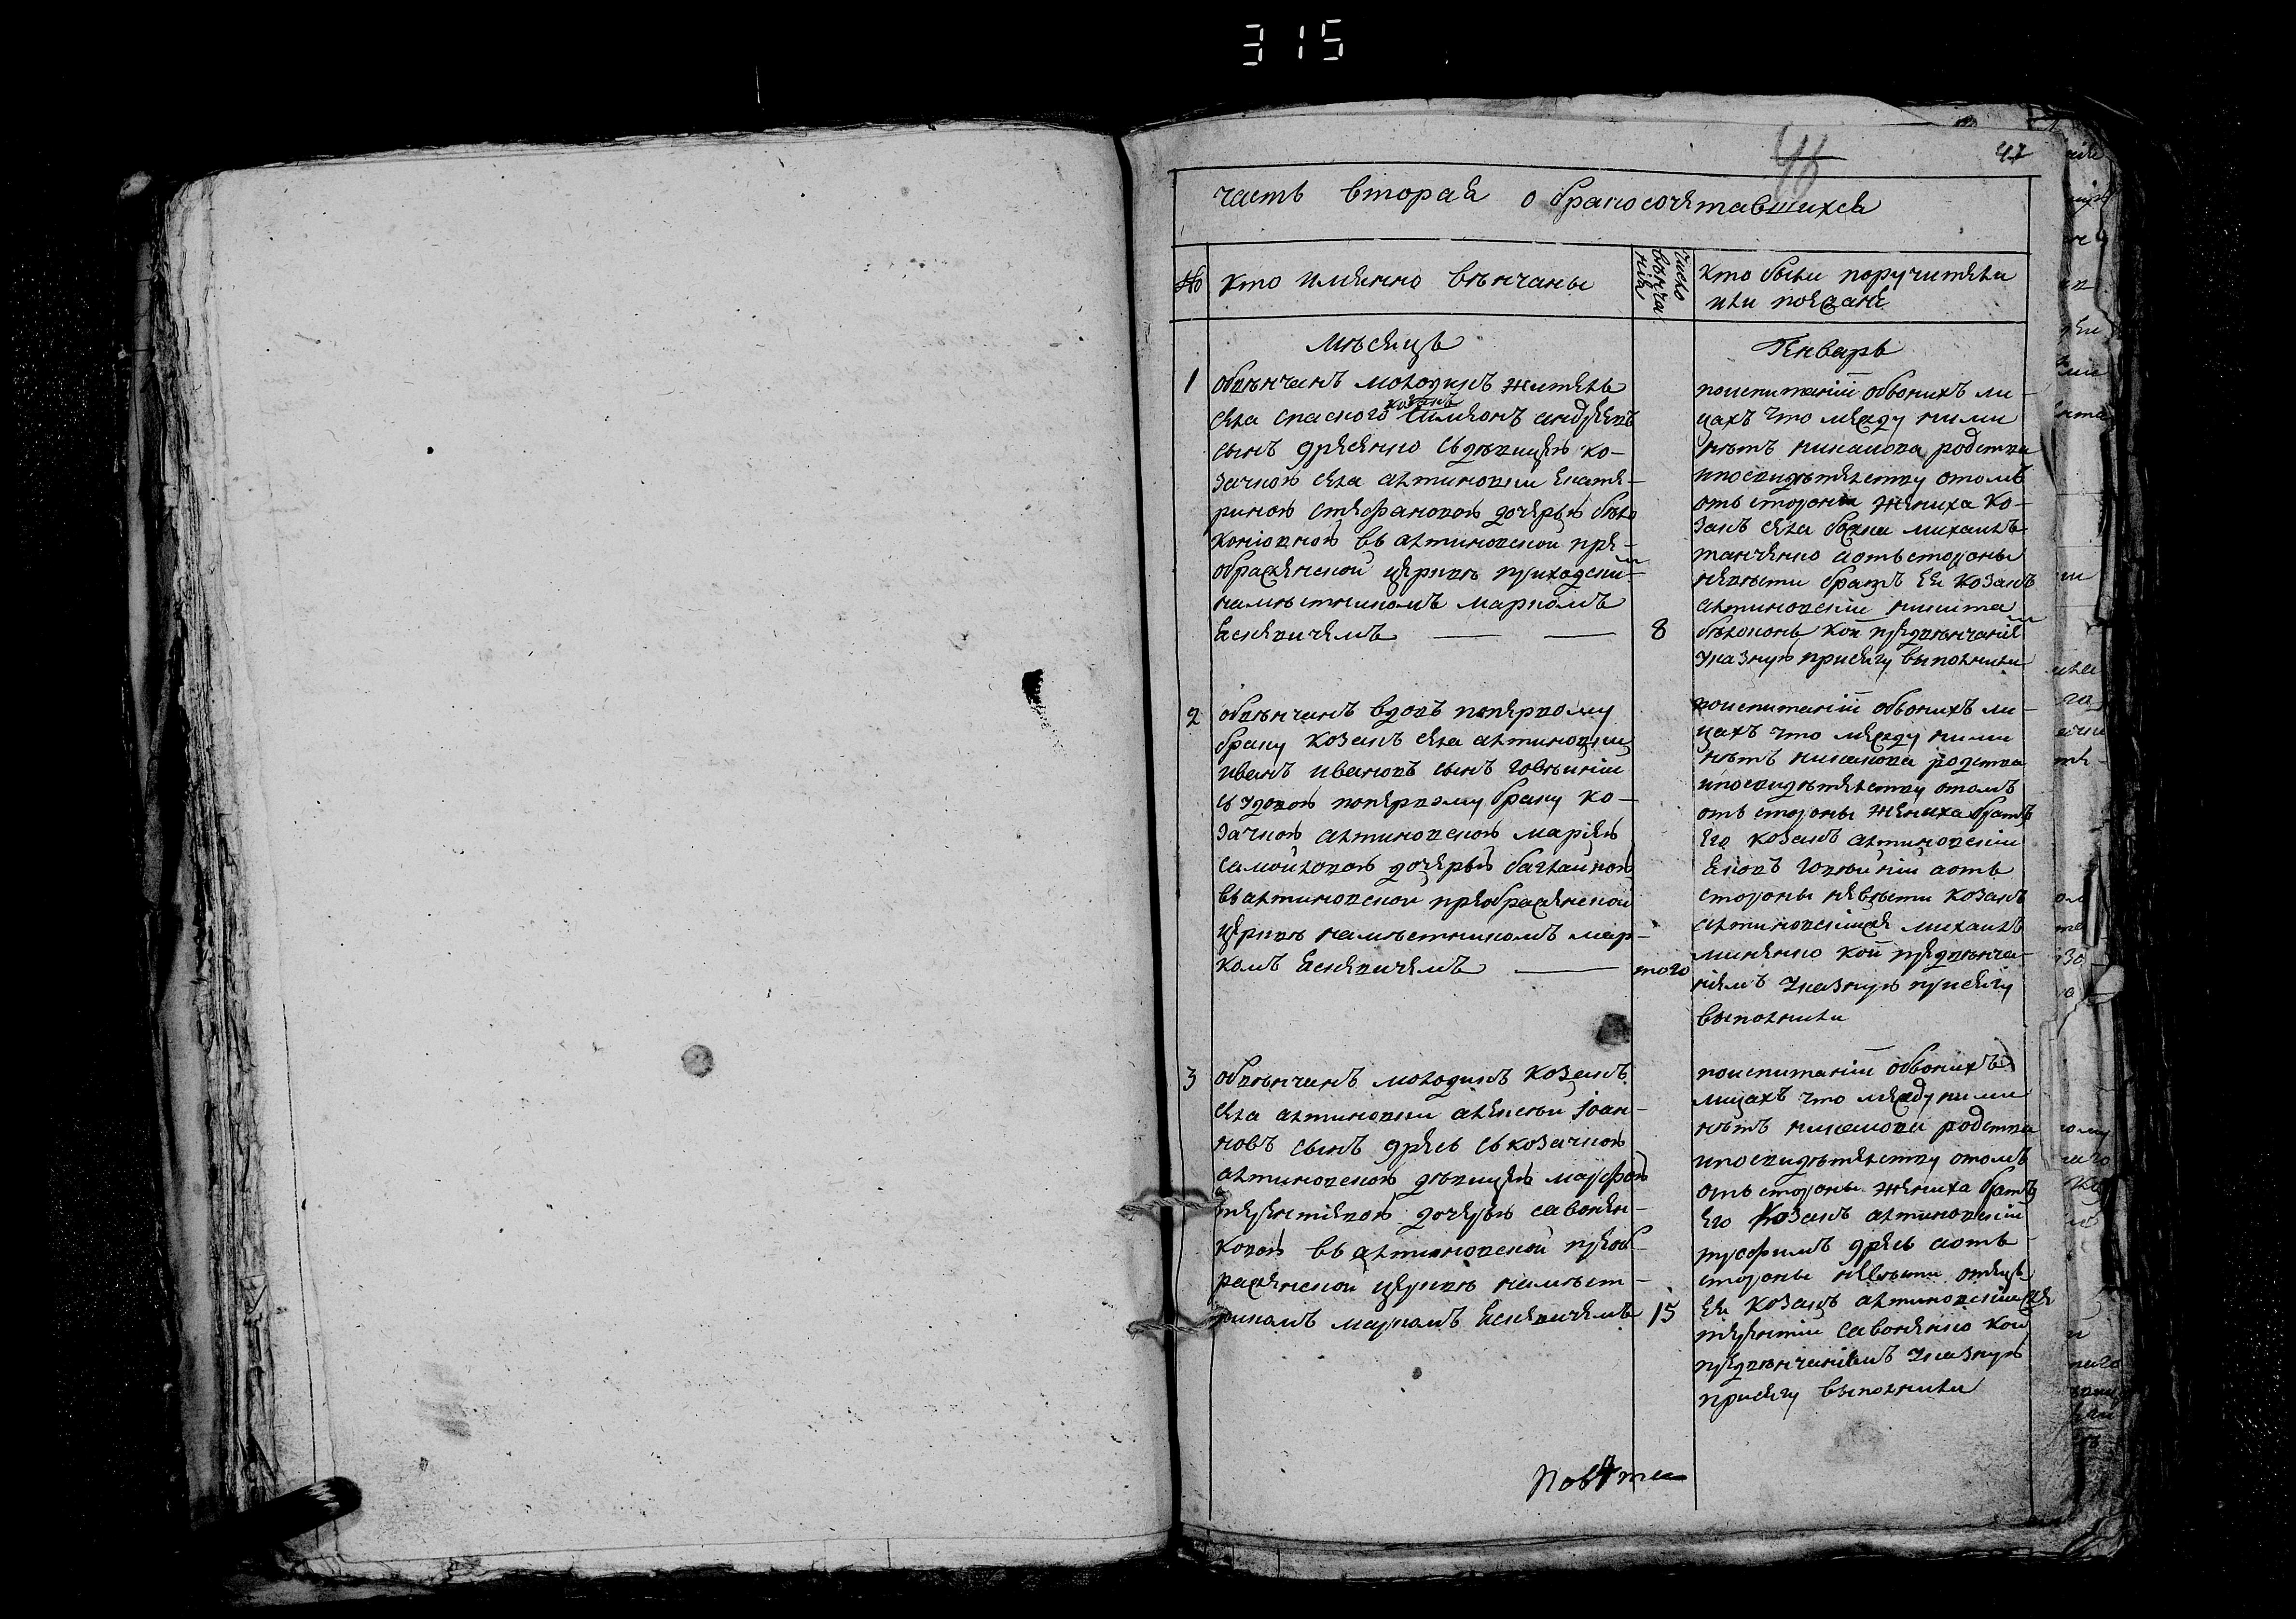 315
46
47
часть вторая о бракосочетавшихся
№ кто именно венчаны
число венчанія
кто были поручители
или поезжане
мѣсяцъ
Генварь
1
обвѣнчанъ молодикъ житель
села спаского козакъ Симеонъ андреевъ
сынъ дресенко съ дѣвицею ко-
зачкою села алтиновки Екате-
риною стефановою дочерью бѣло
коніовною въ алтиновской пре-
ображенской церквѣ приходским
намѣстникомъ маркомъ
Ясневичемъ — —
8
поиспитаніи обоюнихъ ли-
цахъ что между ними
нѣтъ никакова родства
ипосвидѣтелству отомъ
отъ стороны жениха ко-
закъ села михаилъ
танченко аотъ стороны
невѣсти братъ Ея козакъ
алтиновскій никита
бѣлоконь кои предвѣнчаніем
указную присягу выполнили
2
обвѣнчанъ вдовъ попервому
браку козакъ села алтиновки
иванъ ивановъ сынъ говѣиній
съ удовою поперво­му браку ко-
зачкою алтиновскою маріею
самойловою дочерью баглайною
въ алтиновской преображенской
церквѣ намѣстникомъ мар-
комъ Ясневичемъ —
того
поиспитаніи обоюнихъ ли-
цахъ что между ними
нѣтъ никакова родства
ипосвидѣтелству отомъ
отъ стороны жениха братъ
Его козакъ алтиновскій
Яковъ аотъ
стороны невѣсти козакъ
алтиновскійже михаилъ
миненко кои предвѣнча-
ніемъ указную присягу
выполнили
3
обвѣнчанъ молодикъ козакъ
села алтиновки алексѣй Іоан-
новъ сынъ дресь съ козачкою
алтиновскою дѣвицею марфою
терентіевою дочерью савонен-
ковою въ алтиновской преоб-
раженской церквѣ намѣст-
никомъ маркомъ Ясневичемъ
15
поиспитаніи обоюнихъ
лицахъ что между ними
нѣтъ никакова родства
ипосвидѣтелству отомъ
отъ стороны жениха братъ
Его козакъ алтиновскій
трофимъ дресь аотъ
стороны невѣсти отецъ
Ея козакъ алтиновскійже
терентій савоненко кои
предвѣнчаніемъ указную
присягу выполнили